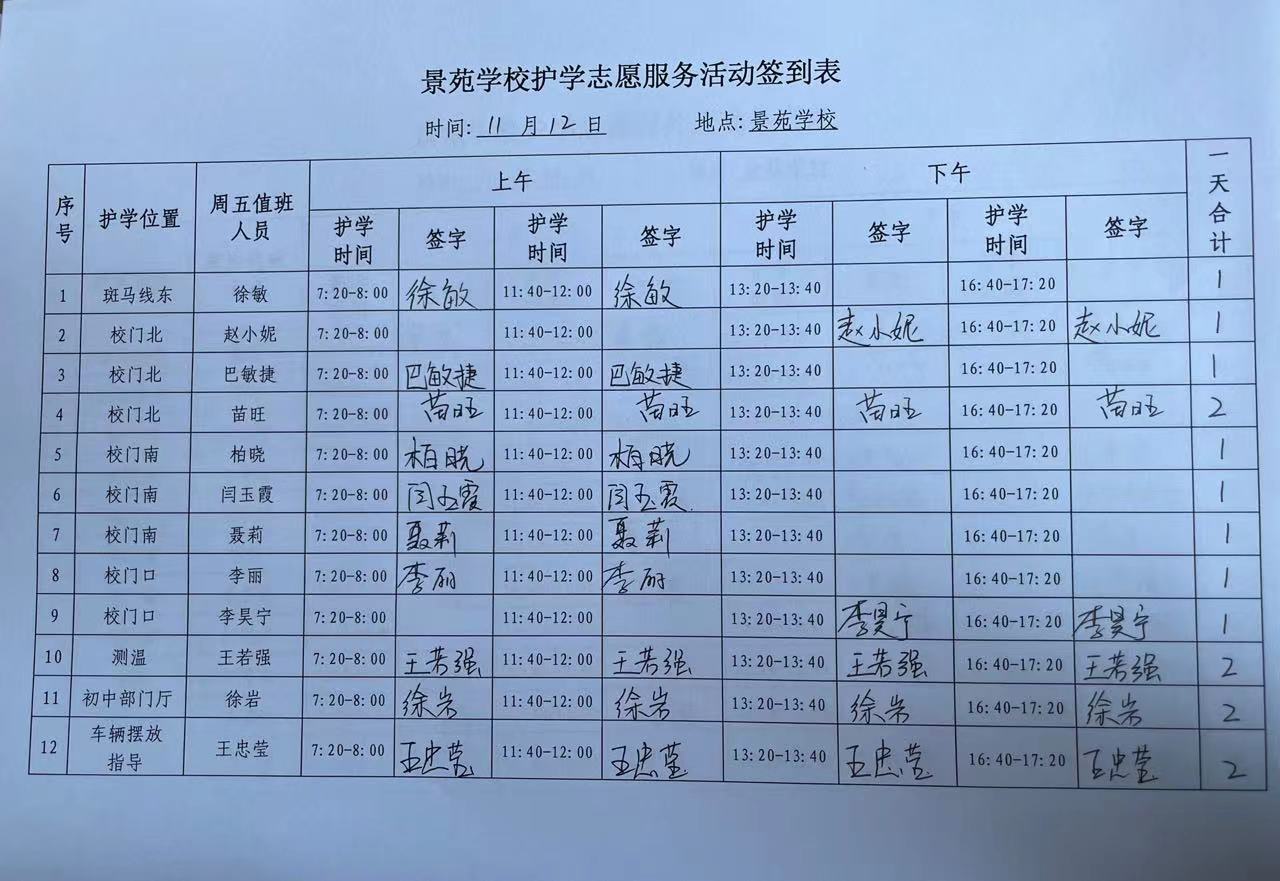 景苑学校护学志愿服务活动签到表
时间: 11 月 12 日 地点: 景苑学校
序号 护学位置 周五值班人员 上午 下午 一天合计
护学时间 签字 护学时间 签字 护学时间 签字 护学时间 签字
1 斑马线东 徐敏 7:20-8:00 徐敏 11:40-12:00 徐敏 13:20-13:40 16:40-17:20 1
2 校门北 赵小妮 7:20-8:00 11:40-12:00 13:20-13:40 赵小妮 16:40-17:20 赵小妮 1
3 校门北 巴敏捷 7:20-8:00 巴敏捷 11:40-12:00 巴敏捷 13:20-13:40 16:40-17:20 1
4 校门北 苗旺 7:20-8:00 苗旺 11:40-12:00 苗旺 13:20-13:40 苗旺 16:40-17:20 苗旺 2
5 校门南 柏晓 7:20-8:00 柏晓 11:40-12:00 柏晓 13:20-13:40 16:40-17:20 1
6 校门南 闫玉霞 7:20-8:00 闫玉霞 11:40-12:00 闫玉霞 13:20-13:40 16:40-17:20 1
7 校门南 聂莉 7:20-8:00 聂莉 11:40-12:00 聂莉 13:20-13:40 16:40-17:20 1
8 校门口 李丽 7:20-8:00 李丽 11:40-12:00 李丽 13:20-13:40 16:40-17:20 1
9 校门口 李昊宁 7:20-8:00 11:40-12:00 13:20-13:40 李昊宁 16:40-17:20 李昊宁 1
10 测温 王若强 7:20-8:00 王若强 11:40-12:00 王若强 13:20-13:40 王若强 16:40-17:20 王若强 2
11 初中部门厅 徐岩 7:20-8:00 徐岩 11:40-12:00 徐岩 13:20-13:40 徐岩 16:40-17:20 徐岩 2
12 车辆摆放指导 王忠莹 7:20-8:00 王忠莹 11:40-12:00 王忠莹 13:20-13:40 王忠莹 16:40-17:20 王忠莹 2